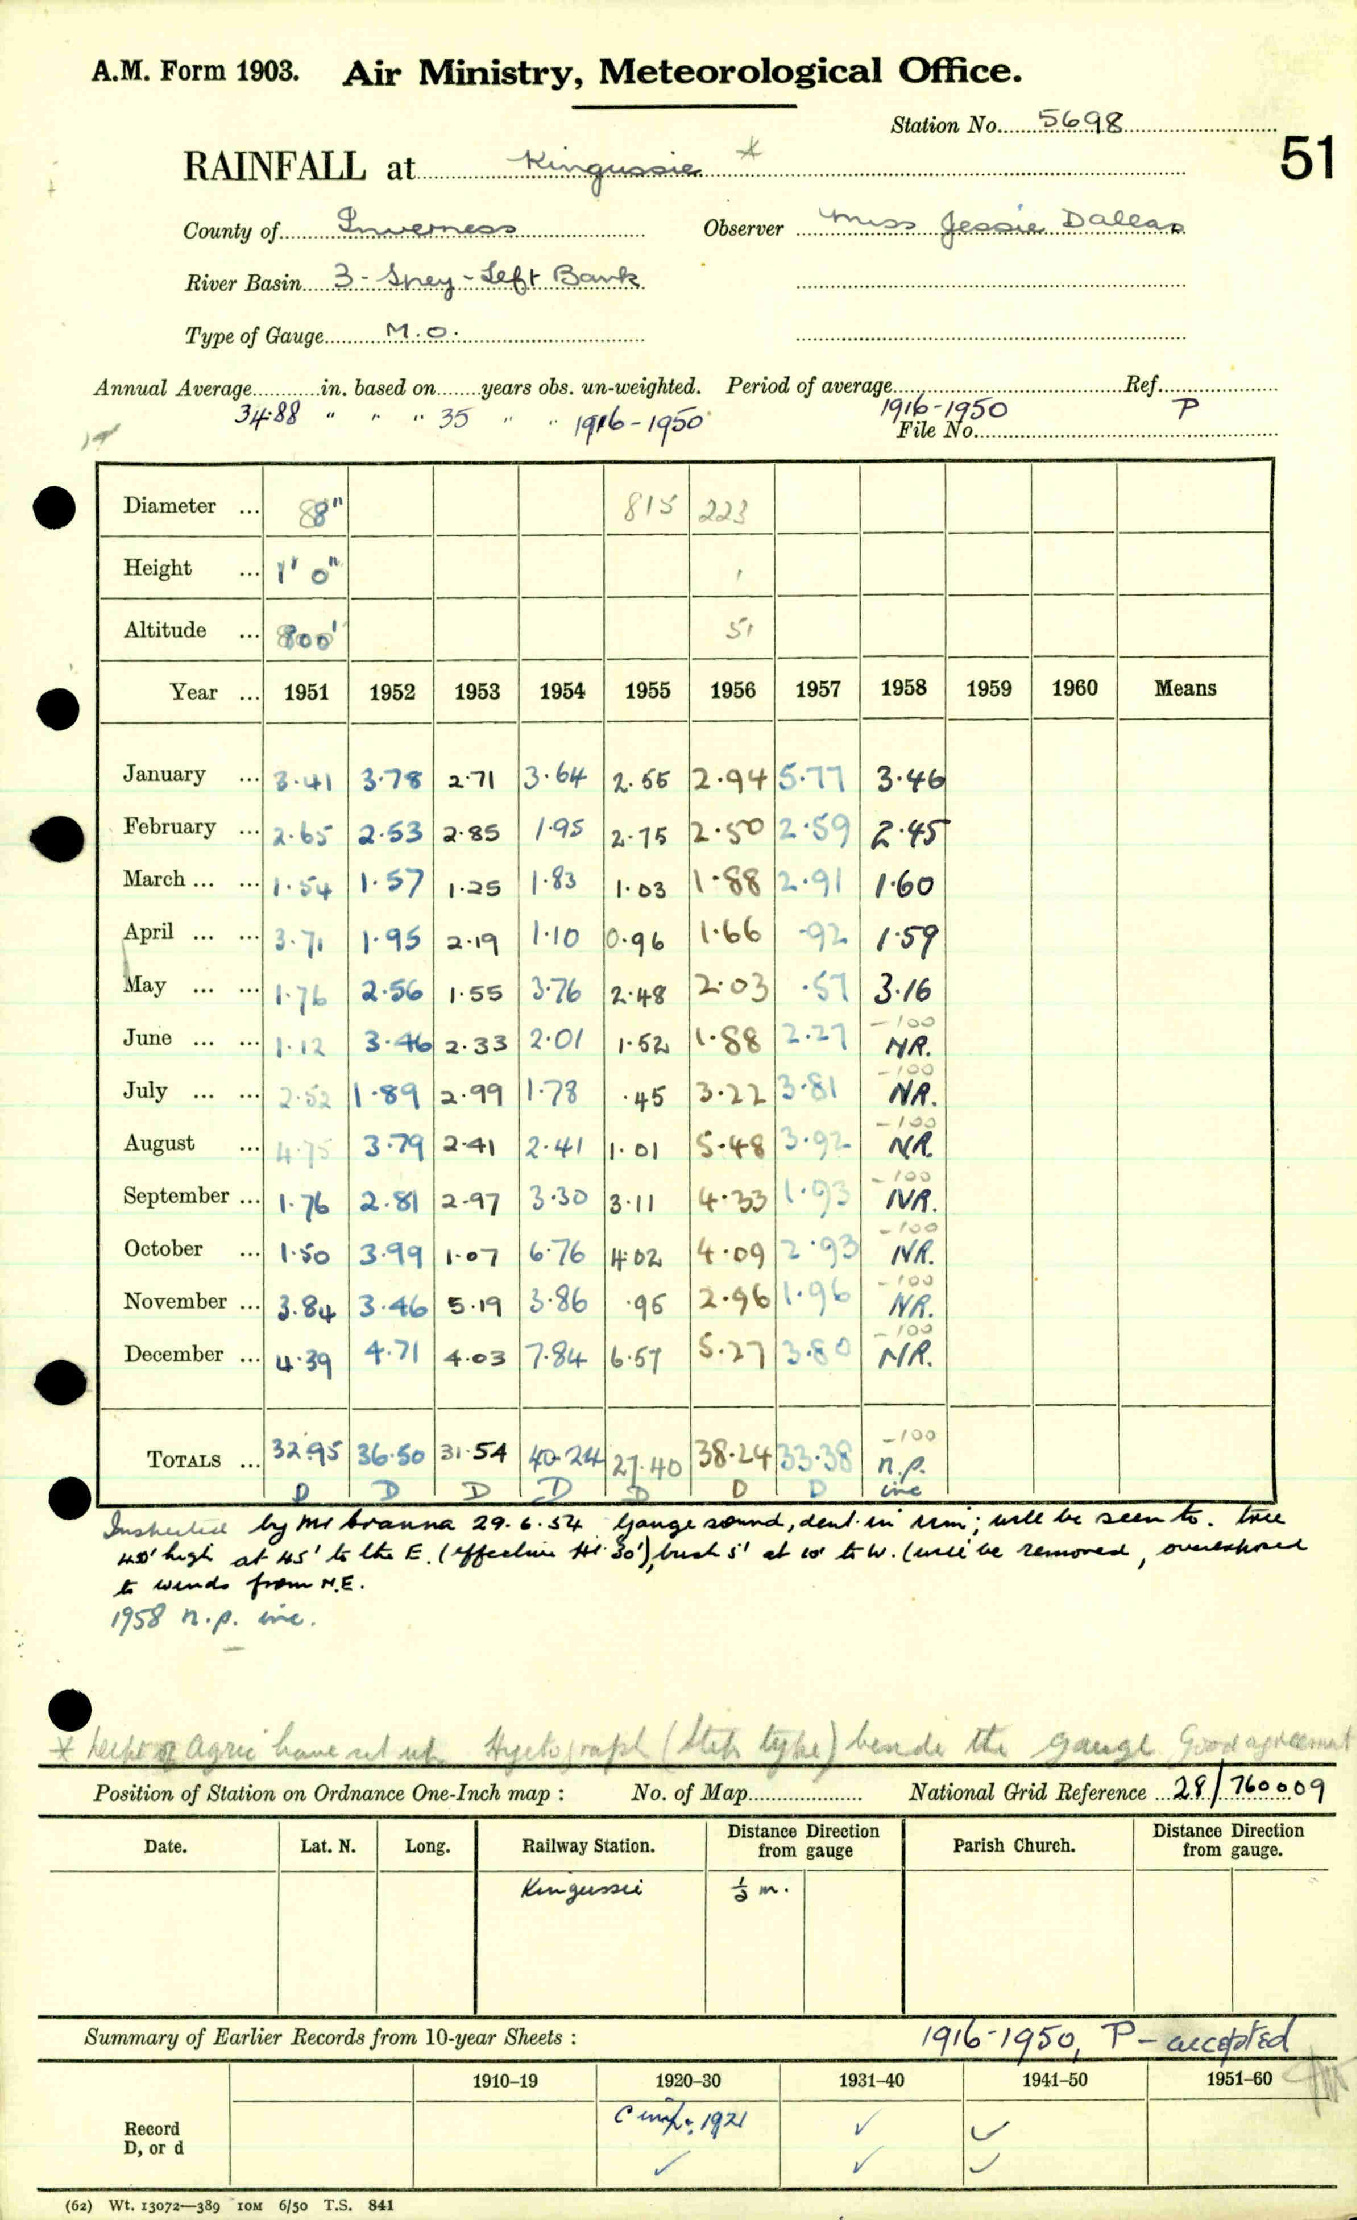 A.M. Form 1903. Air Ministry, Meteorological Office.
Station No. 5698
51
RAINFALL at Kingussie *
County of Inverness Observer Miss Jessie Dallas
River Basin 3 - Spey - Left Bank
Type of Gauge M.O.
Annual Average in. based on years obs. un-weighted. Period of average Ref.
34.88 " " " 35 " " 1916-1950 1916-1950 P
File No.
Diameter ... 8" 815 223
Height ... 1' 0"
Altitude ... 800' 51
Year ... 1951 1952 1953 1954 1955 1956 1957 1958 1959 1960 Means
January ... 3.41 3.78 2.71 3.64 2.55 2.94 5.77 3.46
February ... 2.65 2.53 2.85 1.95 2.75 2.50 2.59 2.45
March ... ... 1.54 1.57 1.25 1.83 1.03 1.88 2.91 1.60
April ... ... 3.71 1.95 2.19 1.10 0.96 1.66 .92 1.59
May ... ... 1.76 2.56 1.55 3.76 2.48 2.03 .57 3.16
June ... ... 1.12 3.46 2.33 2.01 1.52 1.88 2.27 -100 NR.
July ... ... 2.52 1.89 2.99 1.78 .45 3.22 3.81 -100 NR.
August ... 4.75 3.79 2.41 2.41 1.01 5.48 3.92 -100 NR.
September ... 1.76 2.81 2.97 3.30 3.11 4.33 1.93 -100 NR.
October ... 1.50 3.99 1.07 6.76 4.02 4.09 2.93 -100 NR.
November ... 3.84 3.46 5.19 3.86 .95 2.96 1.96 -100 NR.
December ... 4.39 4.71 4.03 7.84 6.57 5.27 3.80 -100 NR.
TOTALS ... 32.95 36.50 31.54 40.24 27.40 38.24 33.38 -100 n.p.
D D D D D D D inc
Inspected by Mr Cranna 29.6.54 Gauge sound, dent in rim; will be seen to. tree
40' high at 45' to the E. (effective Ht 30'), bush 5' at 10' to W. (will be removed, overexposed
to winds from N.E.
1958 n.p. inc.
* Dept of Agric have set up Hyetograph (Step type) beside the gauge Good agreement
Position of Station on Ordnance One-Inch map : No. of Map National Grid Reference 28/760009
Date. Lat. N. Long. Railway Station. Distance from Direction gauge Parish Church. Distance from Direction gauge.
Kingussie ½ m.
Summary of Earlier Records from 10-year Sheets : 1916-1950, P - accepted
1910–19 1920–30 1931–40 1941–50 1951–60
Record 1921 ✓ ✓
D, or d ✓ ✓ ✓
(62) Wt. 13072—389 10M 6/50 T.S. 841